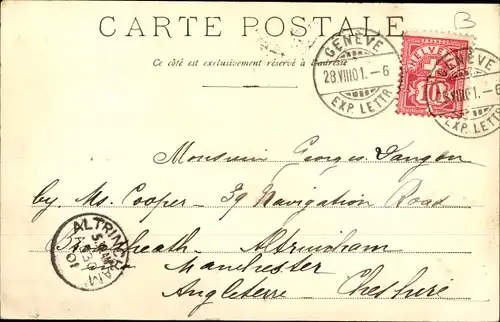 B
CARTE POSTALE
Ce côté est exclusivement réservé à l'adresse
GENÈVE
28.VIII.01.—6
EXP. LETTR.
HELVETIA
FRANCO
10
GENÈVE
28.VIII.01.—6
EXP. LETTR.
Monsieur Georges
by. Ms. Cooper - 39 Navigation Road
Altrincham
Manchester
Angleterre Cheshire
ALTRINCHAM
30
01